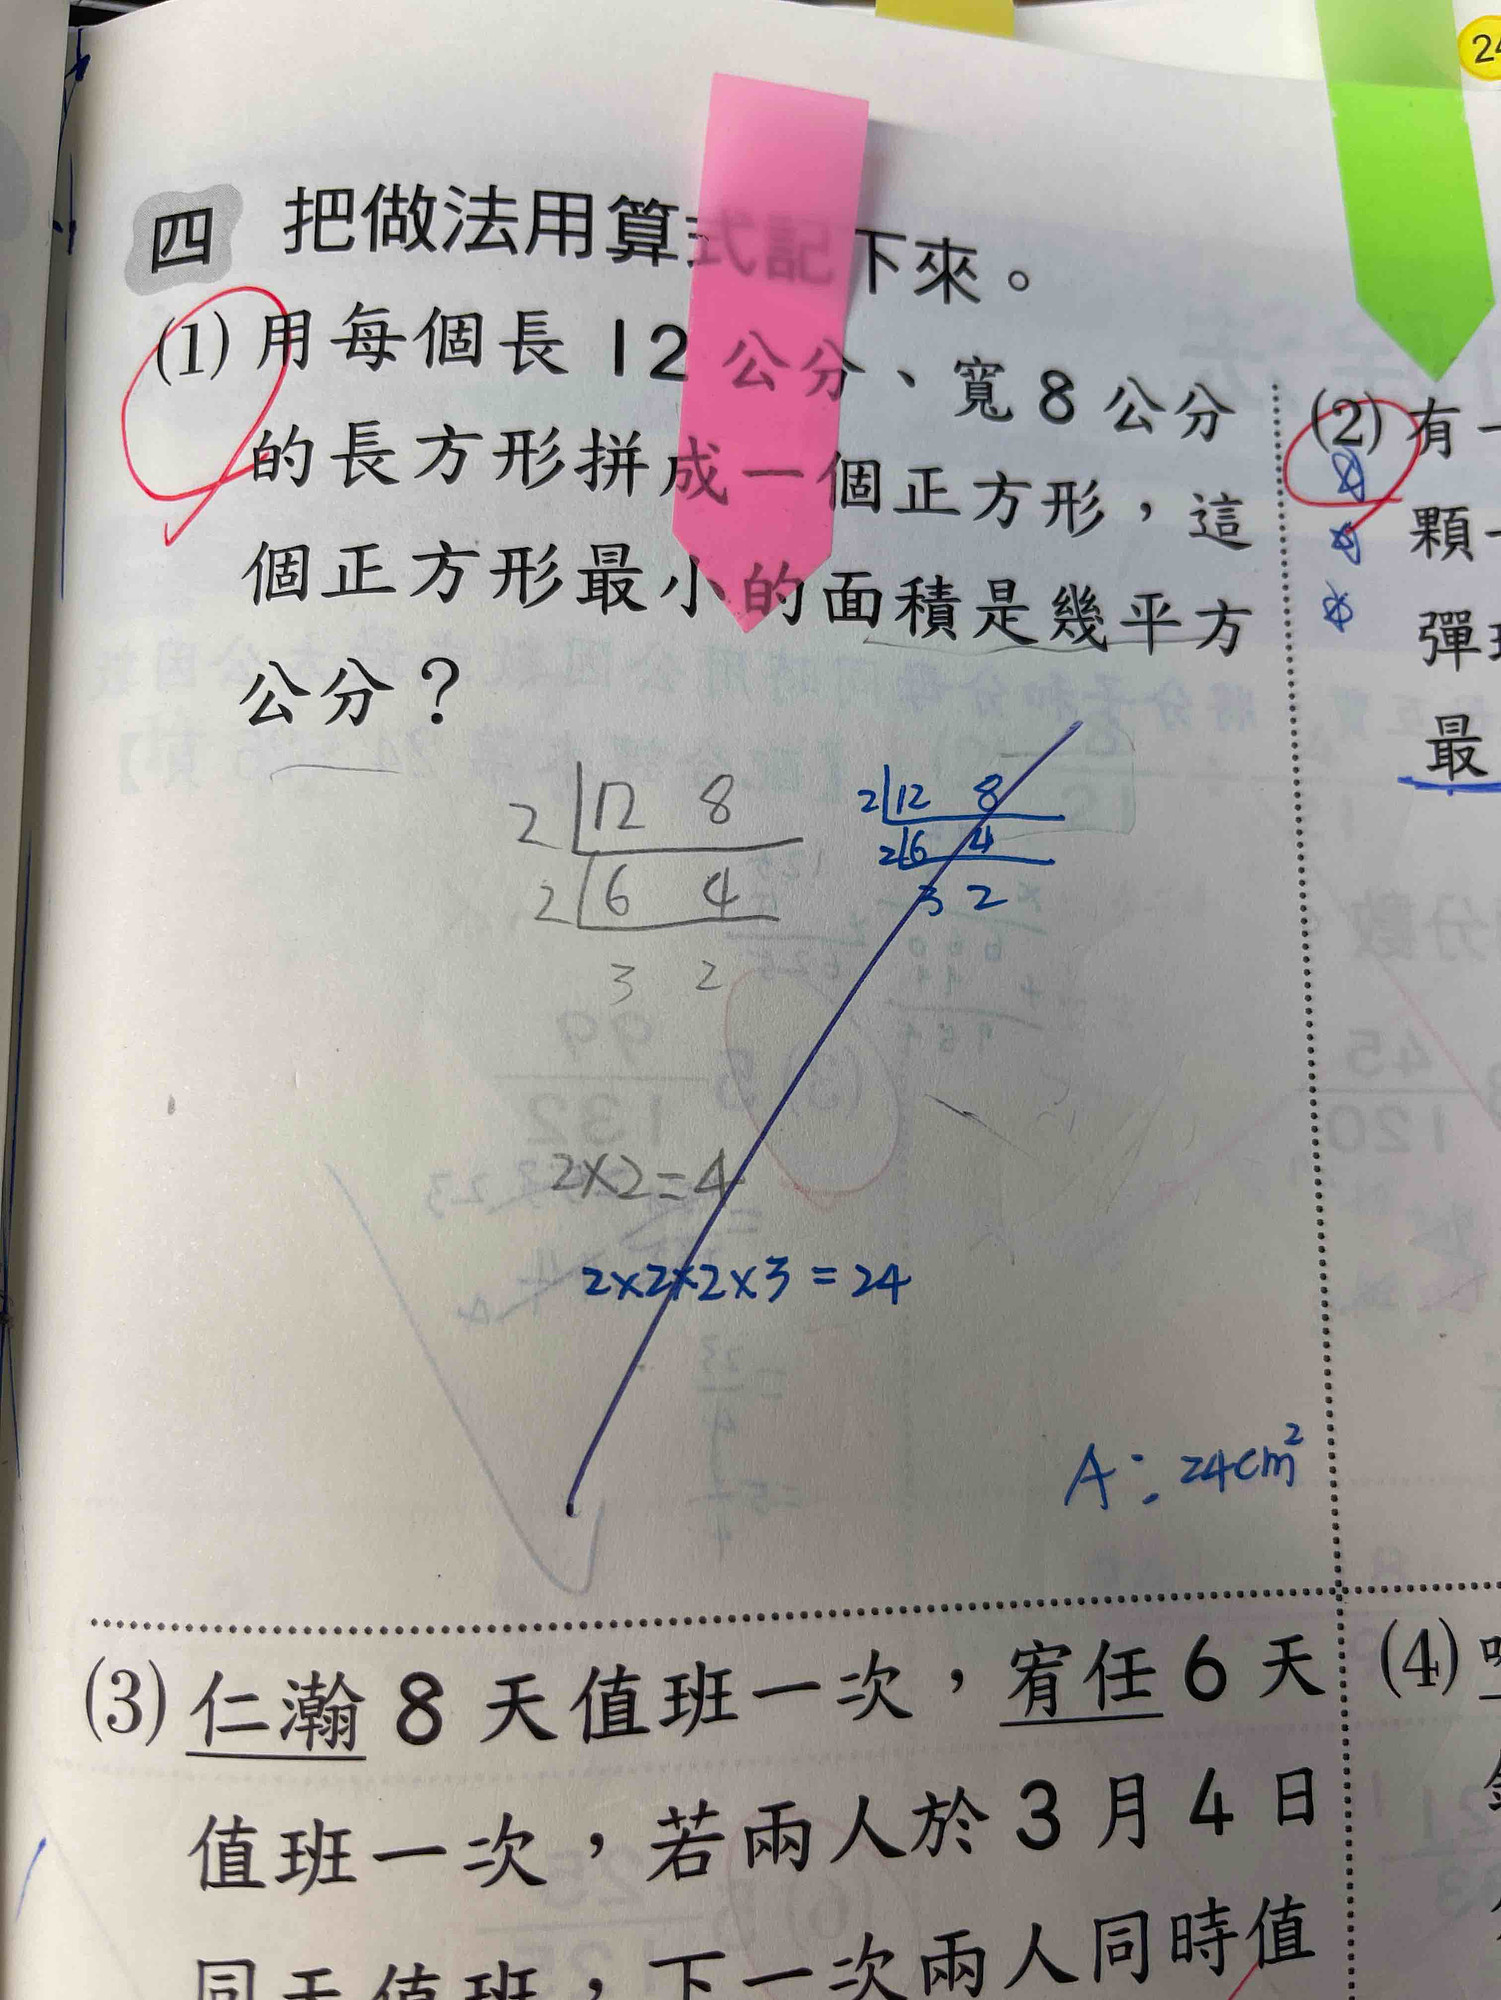 24
四 把做法用算式記下來。
(1) 用每個長 12 公分、寬 8 公分
的長方形拼成一個正方形，這
個正方形最小的面積是幾平方
公分？
2 12 8
2 6 4
3 2
2 12 8
2 6 4
3 2
2×2=4
2×2×2×3=24
A: 24cm²
(2) 有一
顆
彈
最
(3) 仁瀚 8 天值班一次，宥任 6 天
值班一次，若兩人於 3 月 4 日
同天值班，下一次兩人同時值
(4)